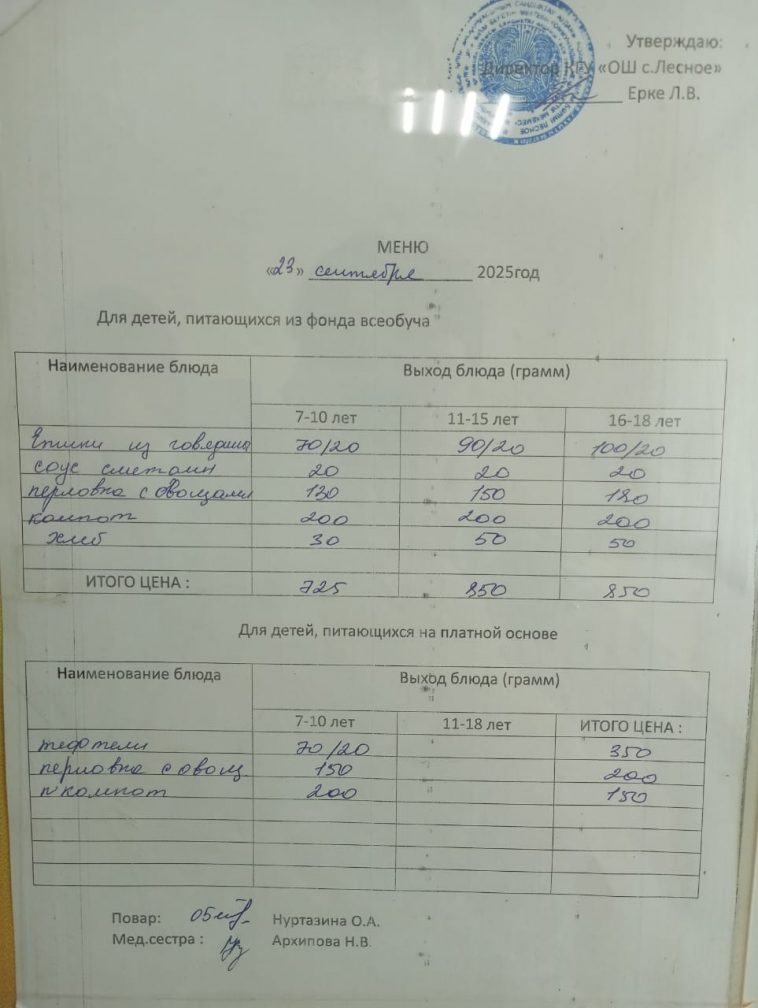 Утверждаю:
Директор КГУ «ОШ с.Лесное»
Ерке Л.В.
МЕНЮ
«23» сентября 2025год
Для детей, питающихся из фонда всеобуча
Наименование блюда Выход блюда (грамм)
7-10 лет 11-15 лет 16-18 лет
из говядины 70/20 90/20 100/20
соус сметанн 20 20 20
перловка с овощами 130 150 180
компот 200 200 200
хлеб 30 50 50
ИТОГО ЦЕНА : 725 850 850
Для детей, питающихся на платной основе
Наименование блюда Выход блюда (грамм)
7-10 лет 11-18 лет ИТОГО ЦЕНА :
тефтели 70/20 350
перловка с овощ 150 200
компот 200 150
Повар: Нуртазина О.А.
Мед.сестра : Архипова Н.В.